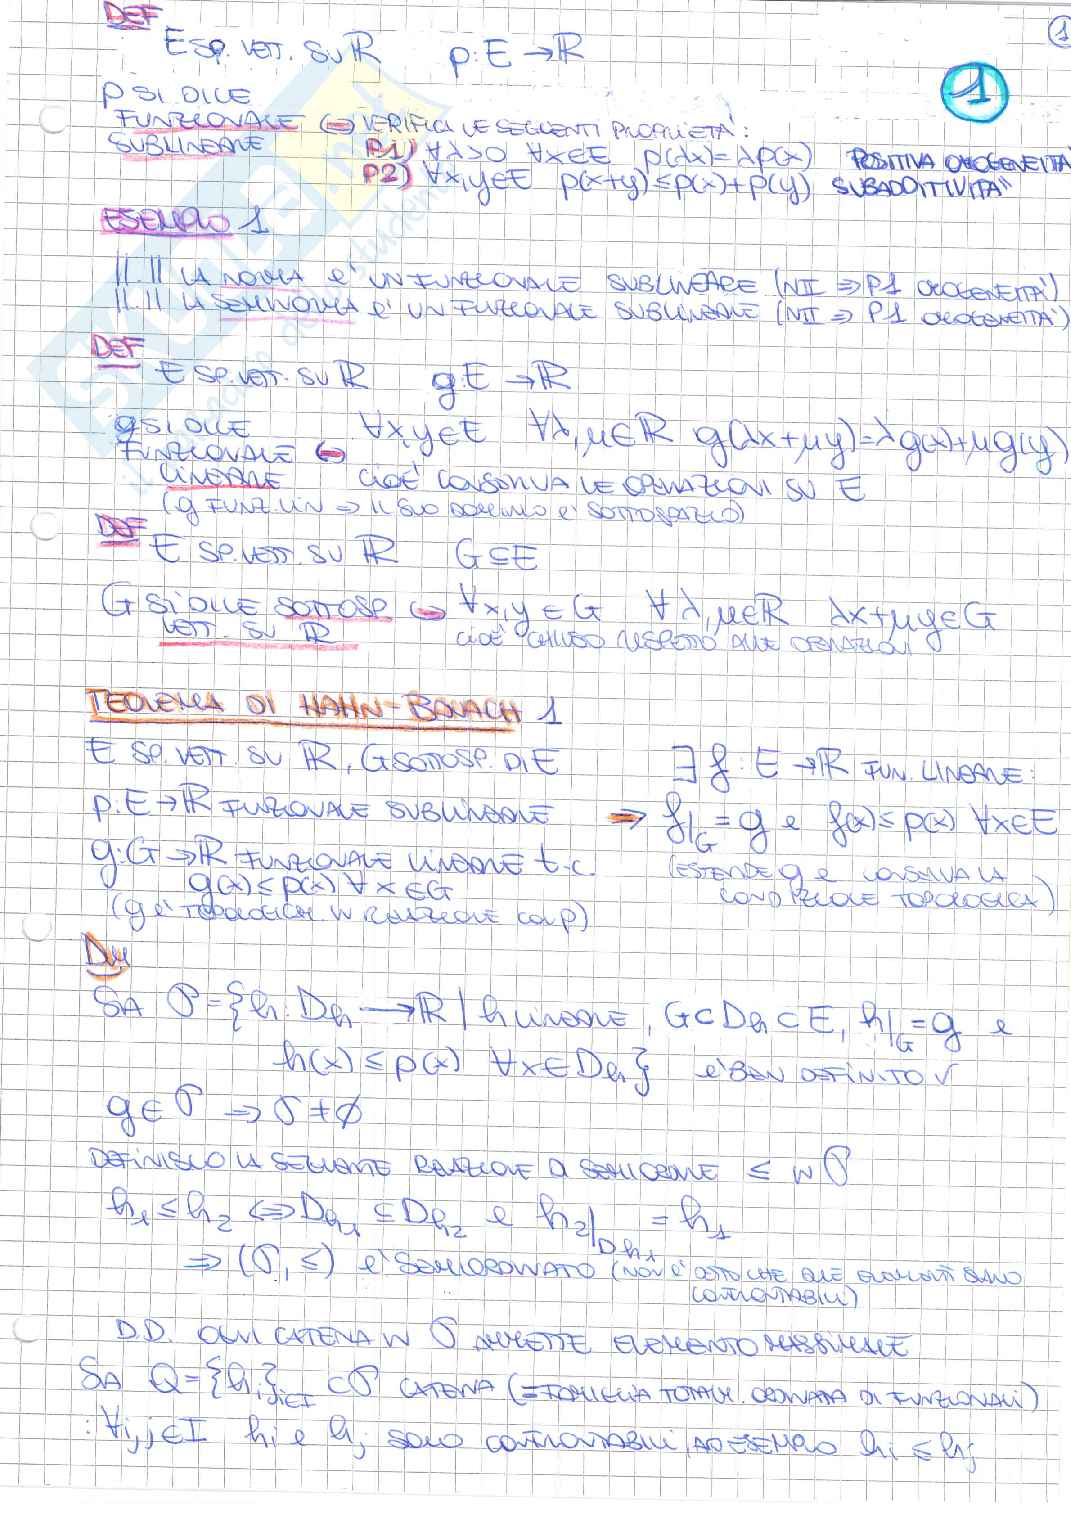 DEF
1
E SP. VETT. SU ℝ p: E → ℝ
1
p SI DICE
FUNZIONALE ⇔ VERIFICA LE SEGUENTI PROPRIETA':
SUBLINEARE P1) ∀λ>0 ∀x∈E p(λx)=λp(x) POSITIVA OMOGENEITA'
P2) ∀x,y∈E p(x+y)≤p(x)+p(y) SUBADDITIVITA'
ESEMPIO 1
||.|| LA NORMA E' UN FUNZIONALE SUBLINEARE (NII ⇒ P1 OMOGENEITA')
||.|| LA SEMINORMA E' UN FUNZIONALE SUBLINEARE (NII ⇒ P1 OMOGENEITA')
DEF
E SP. VETT. SU ℝ g: E → ℝ
g SI DICE ∀x,y∈E ∀λ,μ∈ℝ g(λx+μy)=λg(x)+μg(y)
FUNZIONALE ⇔
LINEARE CIOE' CONSERVA LE OPERAZIONI SU E
(g FUNZ. LIN ⇒ IL SUO DOMINIO E' SOTTOSPAZIO)
DEF
E SP. VETT. SU ℝ G⊆E
G SI DICE SOTTOSP. ⇔ ∀x,y∈G ∀λ,μ∈ℝ λx+μy∈G
VETT. SU ℝ CIOE' CHIUSO RISPETTO ALLE OPERAZIONI
TEOREMA DI HAHN-BANACH 1
E SP. VETT. SU ℝ, G SOTTOSP. DI E ∃ f: E → ℝ FUN. LINEARE:
p: E → ℝ FUNZIONALE SUBLINEARE ⇒ f|G = g e f(x)≤p(x) ∀x∈E
g: G → ℝ FUNZIONALE LINEARE t.c. (ESTENDE g E CONSERVA LA
g(x)≤p(x) ∀x∈G CONDIZIONE TOPOLOGICA)
(g E' TOPOLOGICAM. IN RELAZIONE CON p)
DIM
SIA 𝒫={h: Dh → ℝ | h LINEARE, G⊂Dh⊂E, h|G = g e
h(x)≤p(x) ∀x∈Dh} E' BEN DEFINITO √
g∈𝒫 ⇒ 𝒫≠∅
DEFINISCO LA SEGUENTE RELAZIONE DI SEMIORDINE ≤ IN 𝒫
h1≤h2 ⇔ Dh1⊆Dh2 e h2|Dh1 = h1
⇒ (𝒫,≤) E' SEMIORDINATO (NON E' DETTO CHE DUE ELEMENTI SIANO
CONFRONTABILI)
D.D. OGNI CATENA IN 𝒫 AMMETTE ELEMENTO MASSIMALE
SIA Q={hi}i∈I ⊂𝒫 CATENA (=FAMIGLIA TOTALM. ORDINATA DI FUNZIONALI)
: ∀i,j∈I hi e hj SONO CONFRONTABILI, AD ESEMPIO hi≤hj